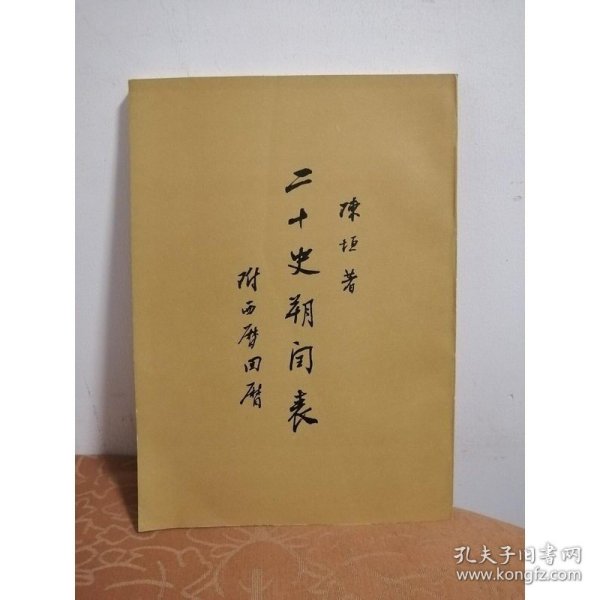 陳垣著
二十史朔閏表
附西曆回曆
孔夫子旧书网
www.kongfz.com